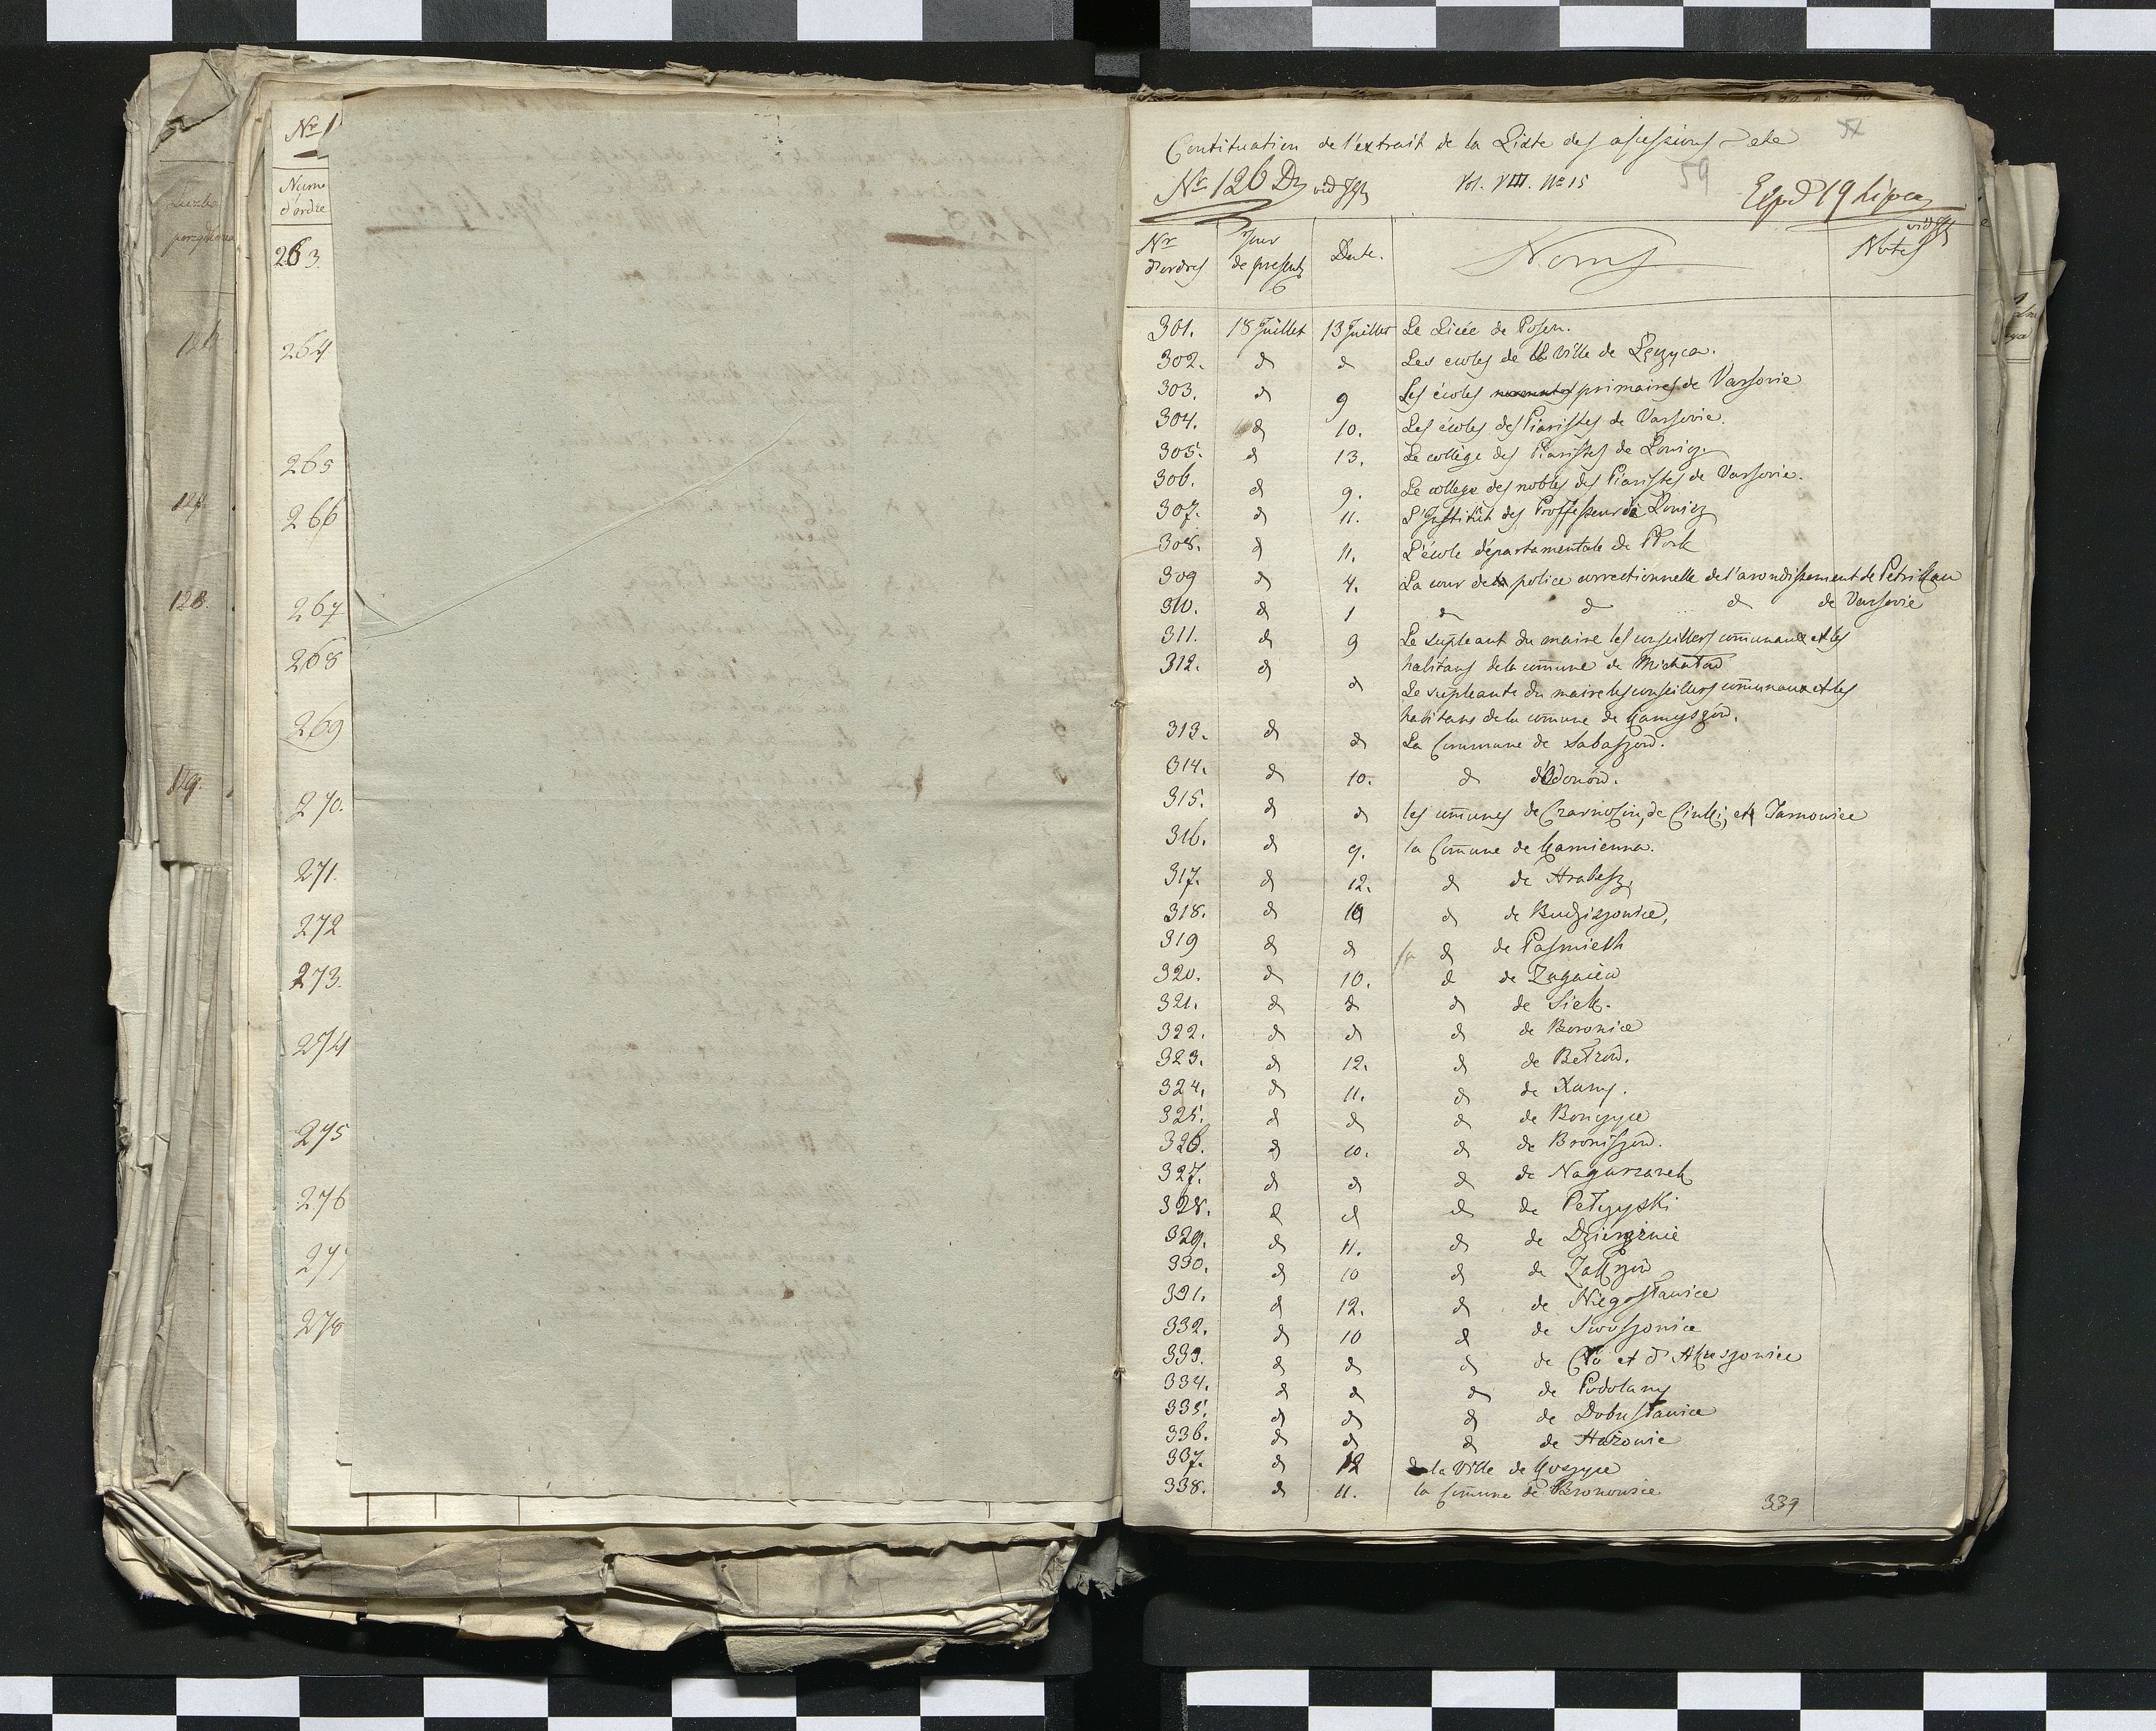 Nr 1
Nume
d'ordre
263.
264
265
266
267
268
269
270.
271.
272
273.
274
275
276
277
278
Liczba
128.
129.
Contituation de l'extrait de la Liste des acessions ete
59
Nr 126 Vol. VIII. Nr 15 Exped 19 Lipca
Nr d'ordres Jour de present Date. Noms Notes
301. 18 Juillet 13 Juillet Le Licée de Posen.
302. d d Les ecoles de la ville de Łęczyca.
303. d 9 Les écoles primaires de Varsovie
304. d 10. Les écoles des Piaristes de Varsovie.
305. d 13. Le collège des Piaristes de Lowicz
306. d 9. Le college des nobles des Piaristes de Varsovie.
307. d 11. L'Institut des Proffesseur de Lowicz
308. d 11. L'école départamentale de Płock
309 d 4. La cour de la police correctionnelle de l'arondissement de Petrikau
310. d 1 d d d de Varsovie
311. d 9 Le supleant du maire les conseillers communaux et les
habitans de la comune de Michałow
312. d d Le supleante du maire les conseillers communaux et les
habitans de la comune de Kamyszow.
313. d d La Commune de Sabaszow.
314. d 10. d d'Odonów.
315. d d les comunes de Czarnocin, de Ciuslic, et Tarnowice
316. d 9. la Comune de Kamienna.
317. d 12. d de
318. d 10 d de Budziszowice,
319 d d la d de
320. d 10. d de Zagaiew
321. d d d de Sick.
322. d d d de Boronice
323. d 12. d de Bełzow.
324. d 11. d de
325. d d d de Bonczyce
326. d 10. d de Broniszow.
327. d d d de Nagurzanek
328. d d d de Pełczyski
329. d 11. d de Dzierążnie
330. d 10 d de Zakrzow
331. d 12. d de Niegosławice
332. d 10 d de Swoszowice
333. d d d de Cło et d
334. d d d de Podolany
335. d d d de Dobiesławice
336. d d d de
337. d 12 la Ville de Koszyce
338. d 11. la Comune de Bronowice
339